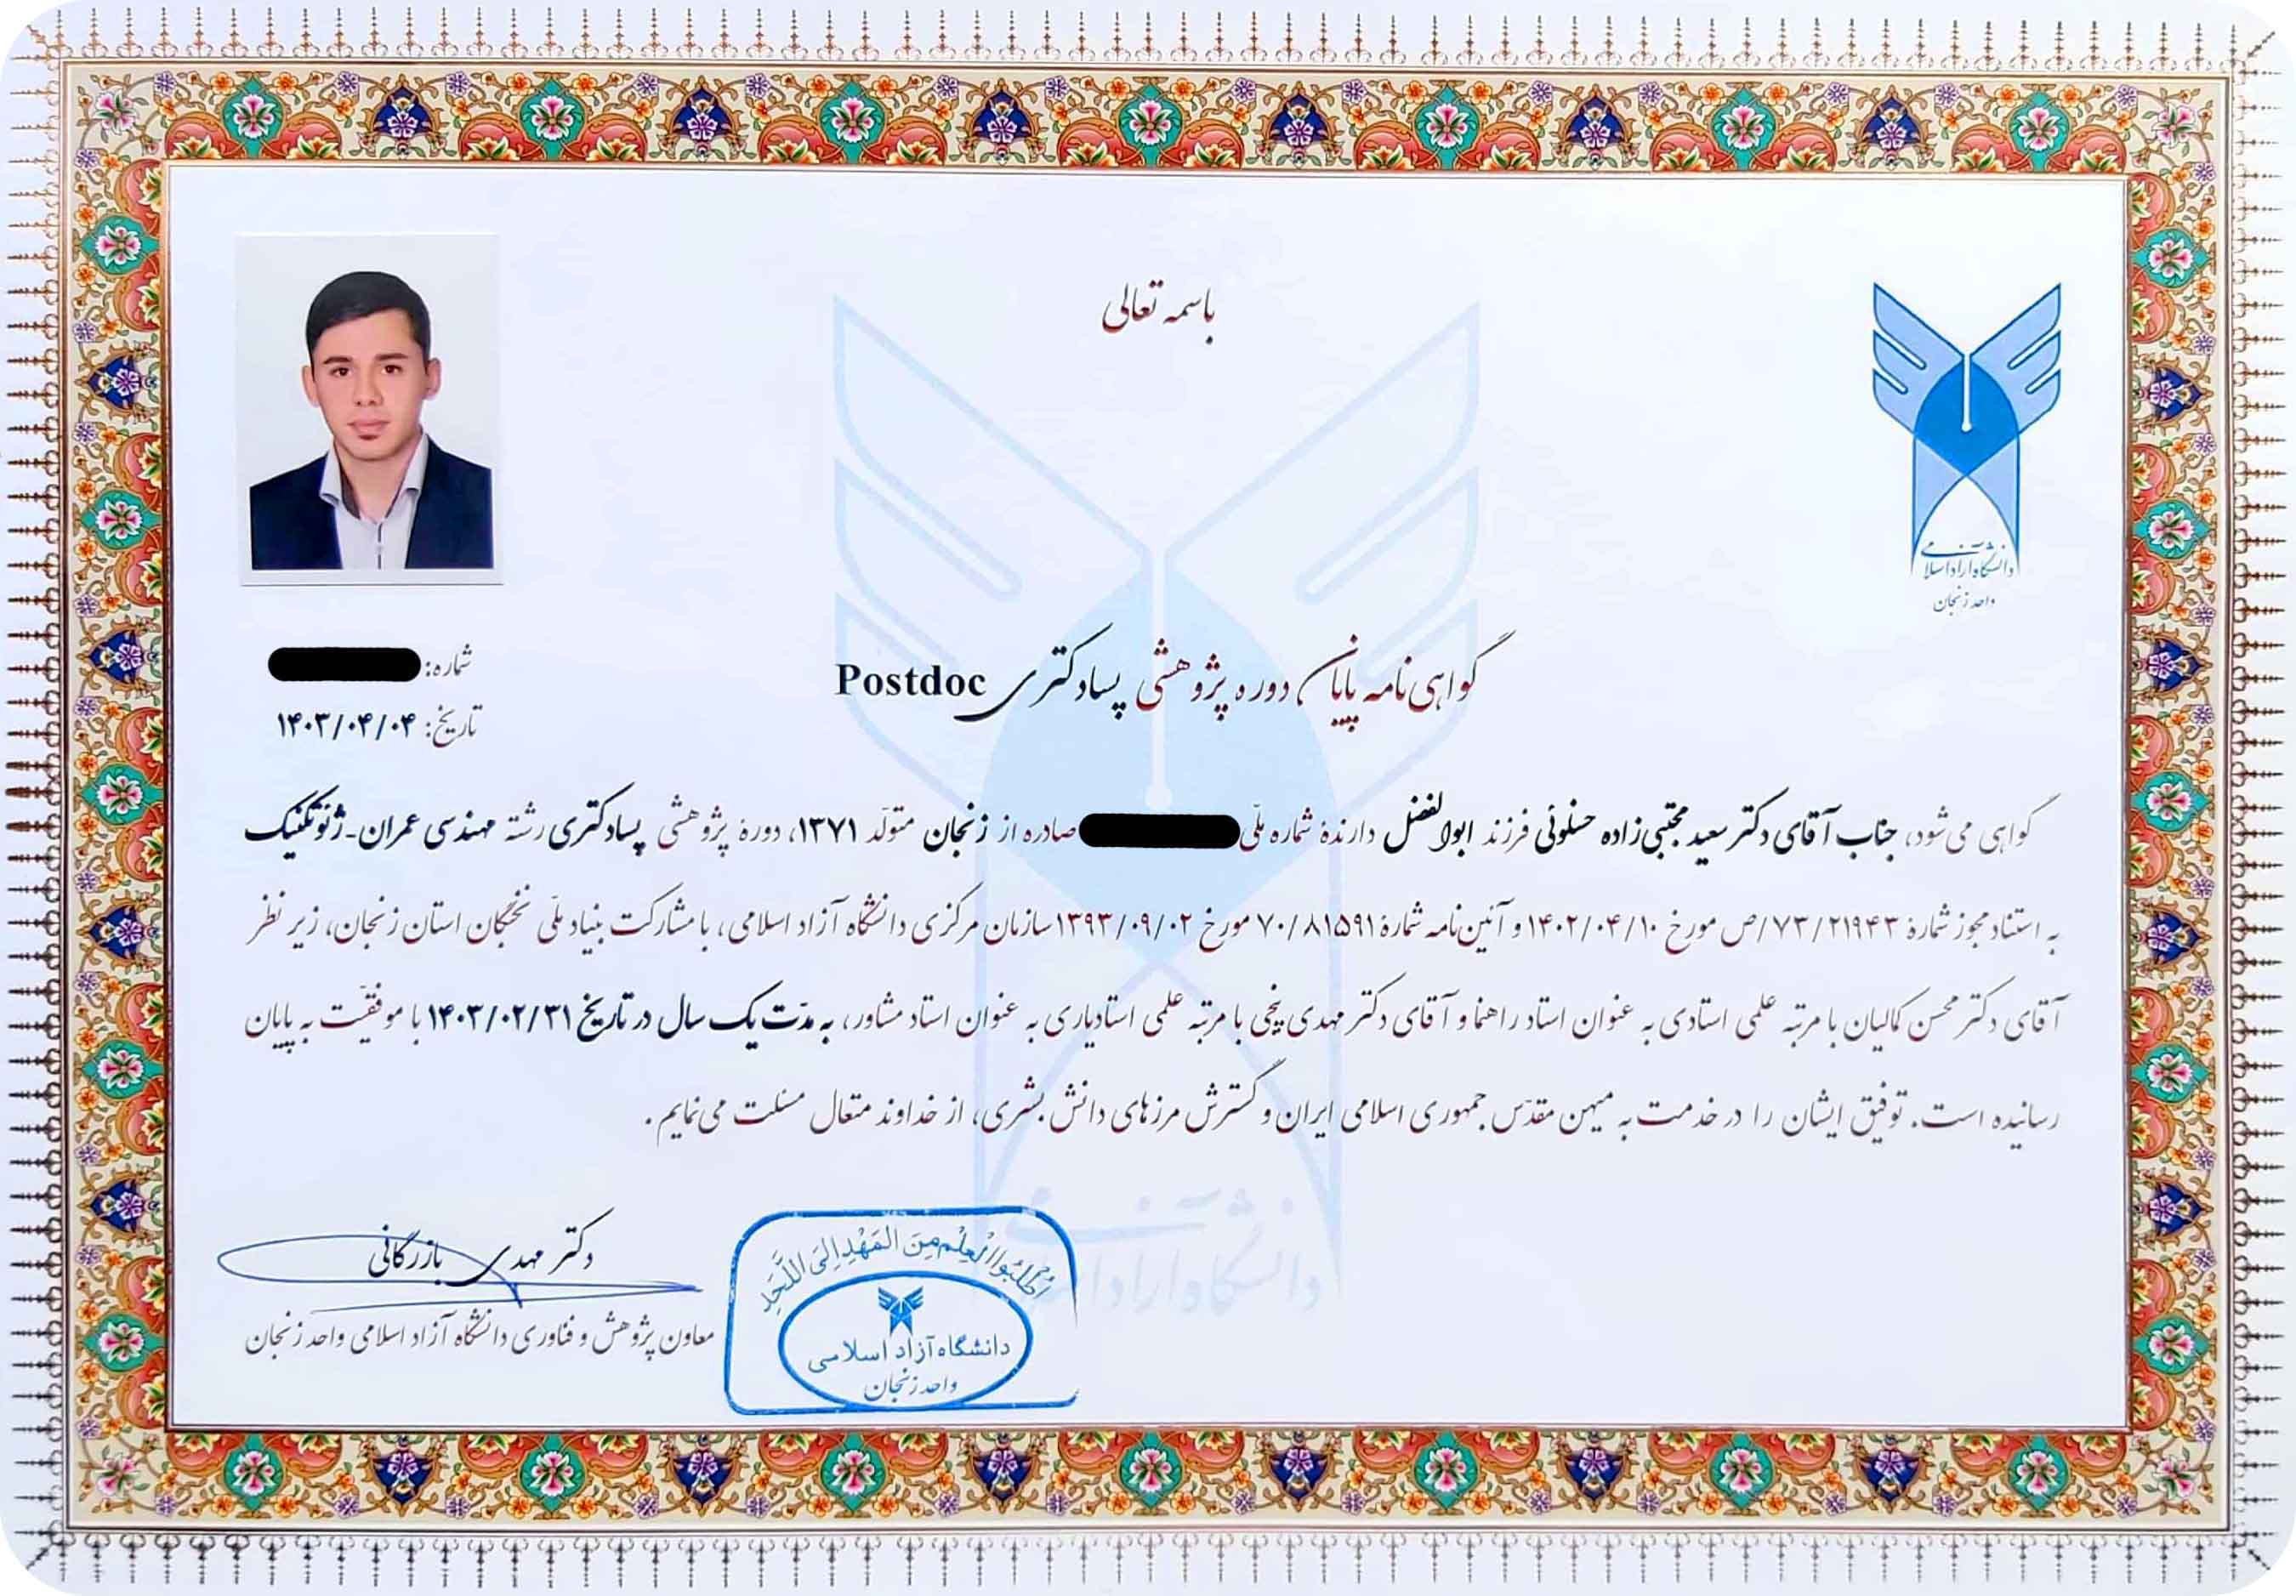 باسمه تعالی
دانشگاه آزاد اسلامی
واحد زنجان
گواهی‌نامه پایان دوره پژوهشی پسادکتری Postdoc
شماره:
تاریخ: ۱۴۰۳/۰۴/۰۴
گواهی می‌شود، جناب آقای دکتر سعید مجتبی‌زاده حسنلوئی فرزند ابوالفضل دارندۀ شماره ملّی صادره از زنجان متولّد ۱۳۷۱، دورۀ پژوهشی پسادکتری رشته مهندسی عمران-ژئوتکنیک
به استناد مجوز شمارۀ ۷۳/۲۱۹۴۳/ص مورخ ۱۴۰۲/۰۴/۱۰ و آئین‌نامه شمارۀ ۷۰/۸۱۵۹۱ مورخ ۱۳۹۳/۰۹/۰۲ سازمان مرکزی دانشگاه آزاد اسلامی، با مشارکت بنیاد ملّی نخبگان استان زنجان، زیر نظر
آقای دکتر محسن کمالیان با مرتبه علمی استادی به عنوان استاد راهنما و آقای دکتر مهدی پنجی با مرتبه علمی استادیاری به عنوان استاد مشاور، به مدّت یک سال در تاریخ ۱۴۰۳/۰۲/۳۱ با موفقیّت به پایان
رسانیده است. توفیق ایشان را در خدمت به میهن مقدّس جمهوری اسلامی ایران و گسترش مرزهای دانش بشری، از خداوند متعال مسئلت می‌نمایم.
دکتر مهدی بازرگانی
معاون پژوهش و فناوری دانشگاه آزاد اسلامی واحد زنجان
اُطْلُبُوا الْعِلْمَ مِنَ الْمَهْدِ اِلَی اللَّحَدِ
دانشگاه آزاد اسلامی
واحد زنجان
دانشگاه آزاد اسلامی